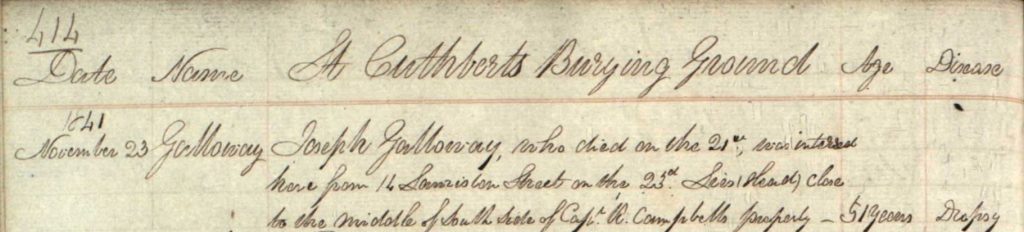 414
Date Name St Cuthberts Burying Ground Age Disease
1841
November 23 Galloway Joseph Galloway, who died on the 21st, was interred
here from 14 Lauriston Street on the 23d. Lies (Head) close
to the middle of South side of Capt. R. Campbells property – 51 Years Dropsy